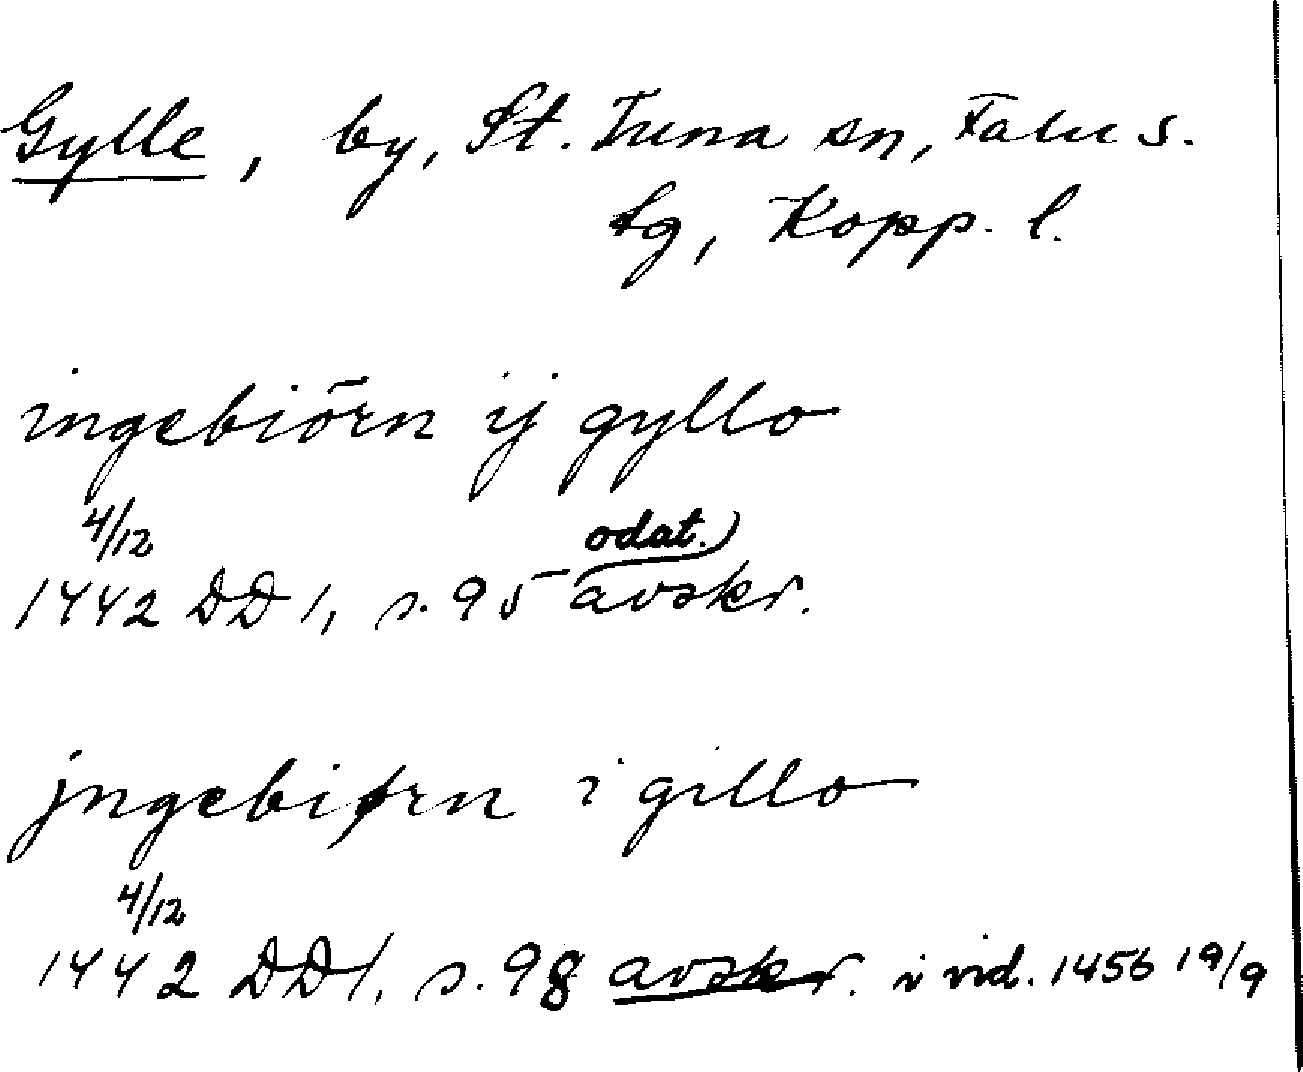 Gylle, by, St. Tuna sn, Falu s.
tg, Kopp. l.
ingebiörn ij gyllo
4/12
odat.)
1442 DD 1, s. 95 avskr.
jngebiørn i gillo
4/12
1442 DD 1, s. 98 avskr. i vid. 1456 19/9